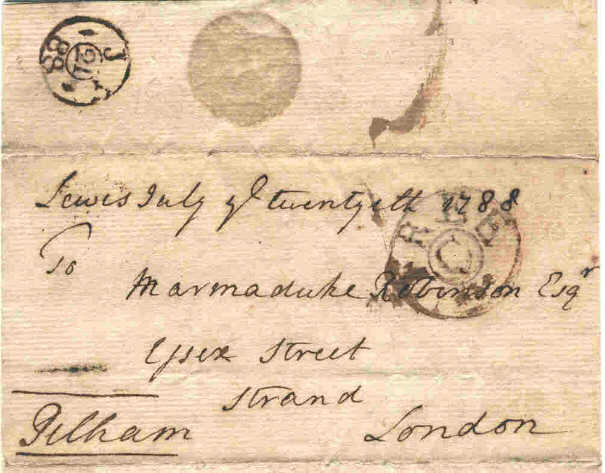 J
21
88
Lewis July yᵉ twentyeth 1788
FREE
C
To
Marmaduke Robinson Esqʳ
Essex Street
Strand
Pelham London